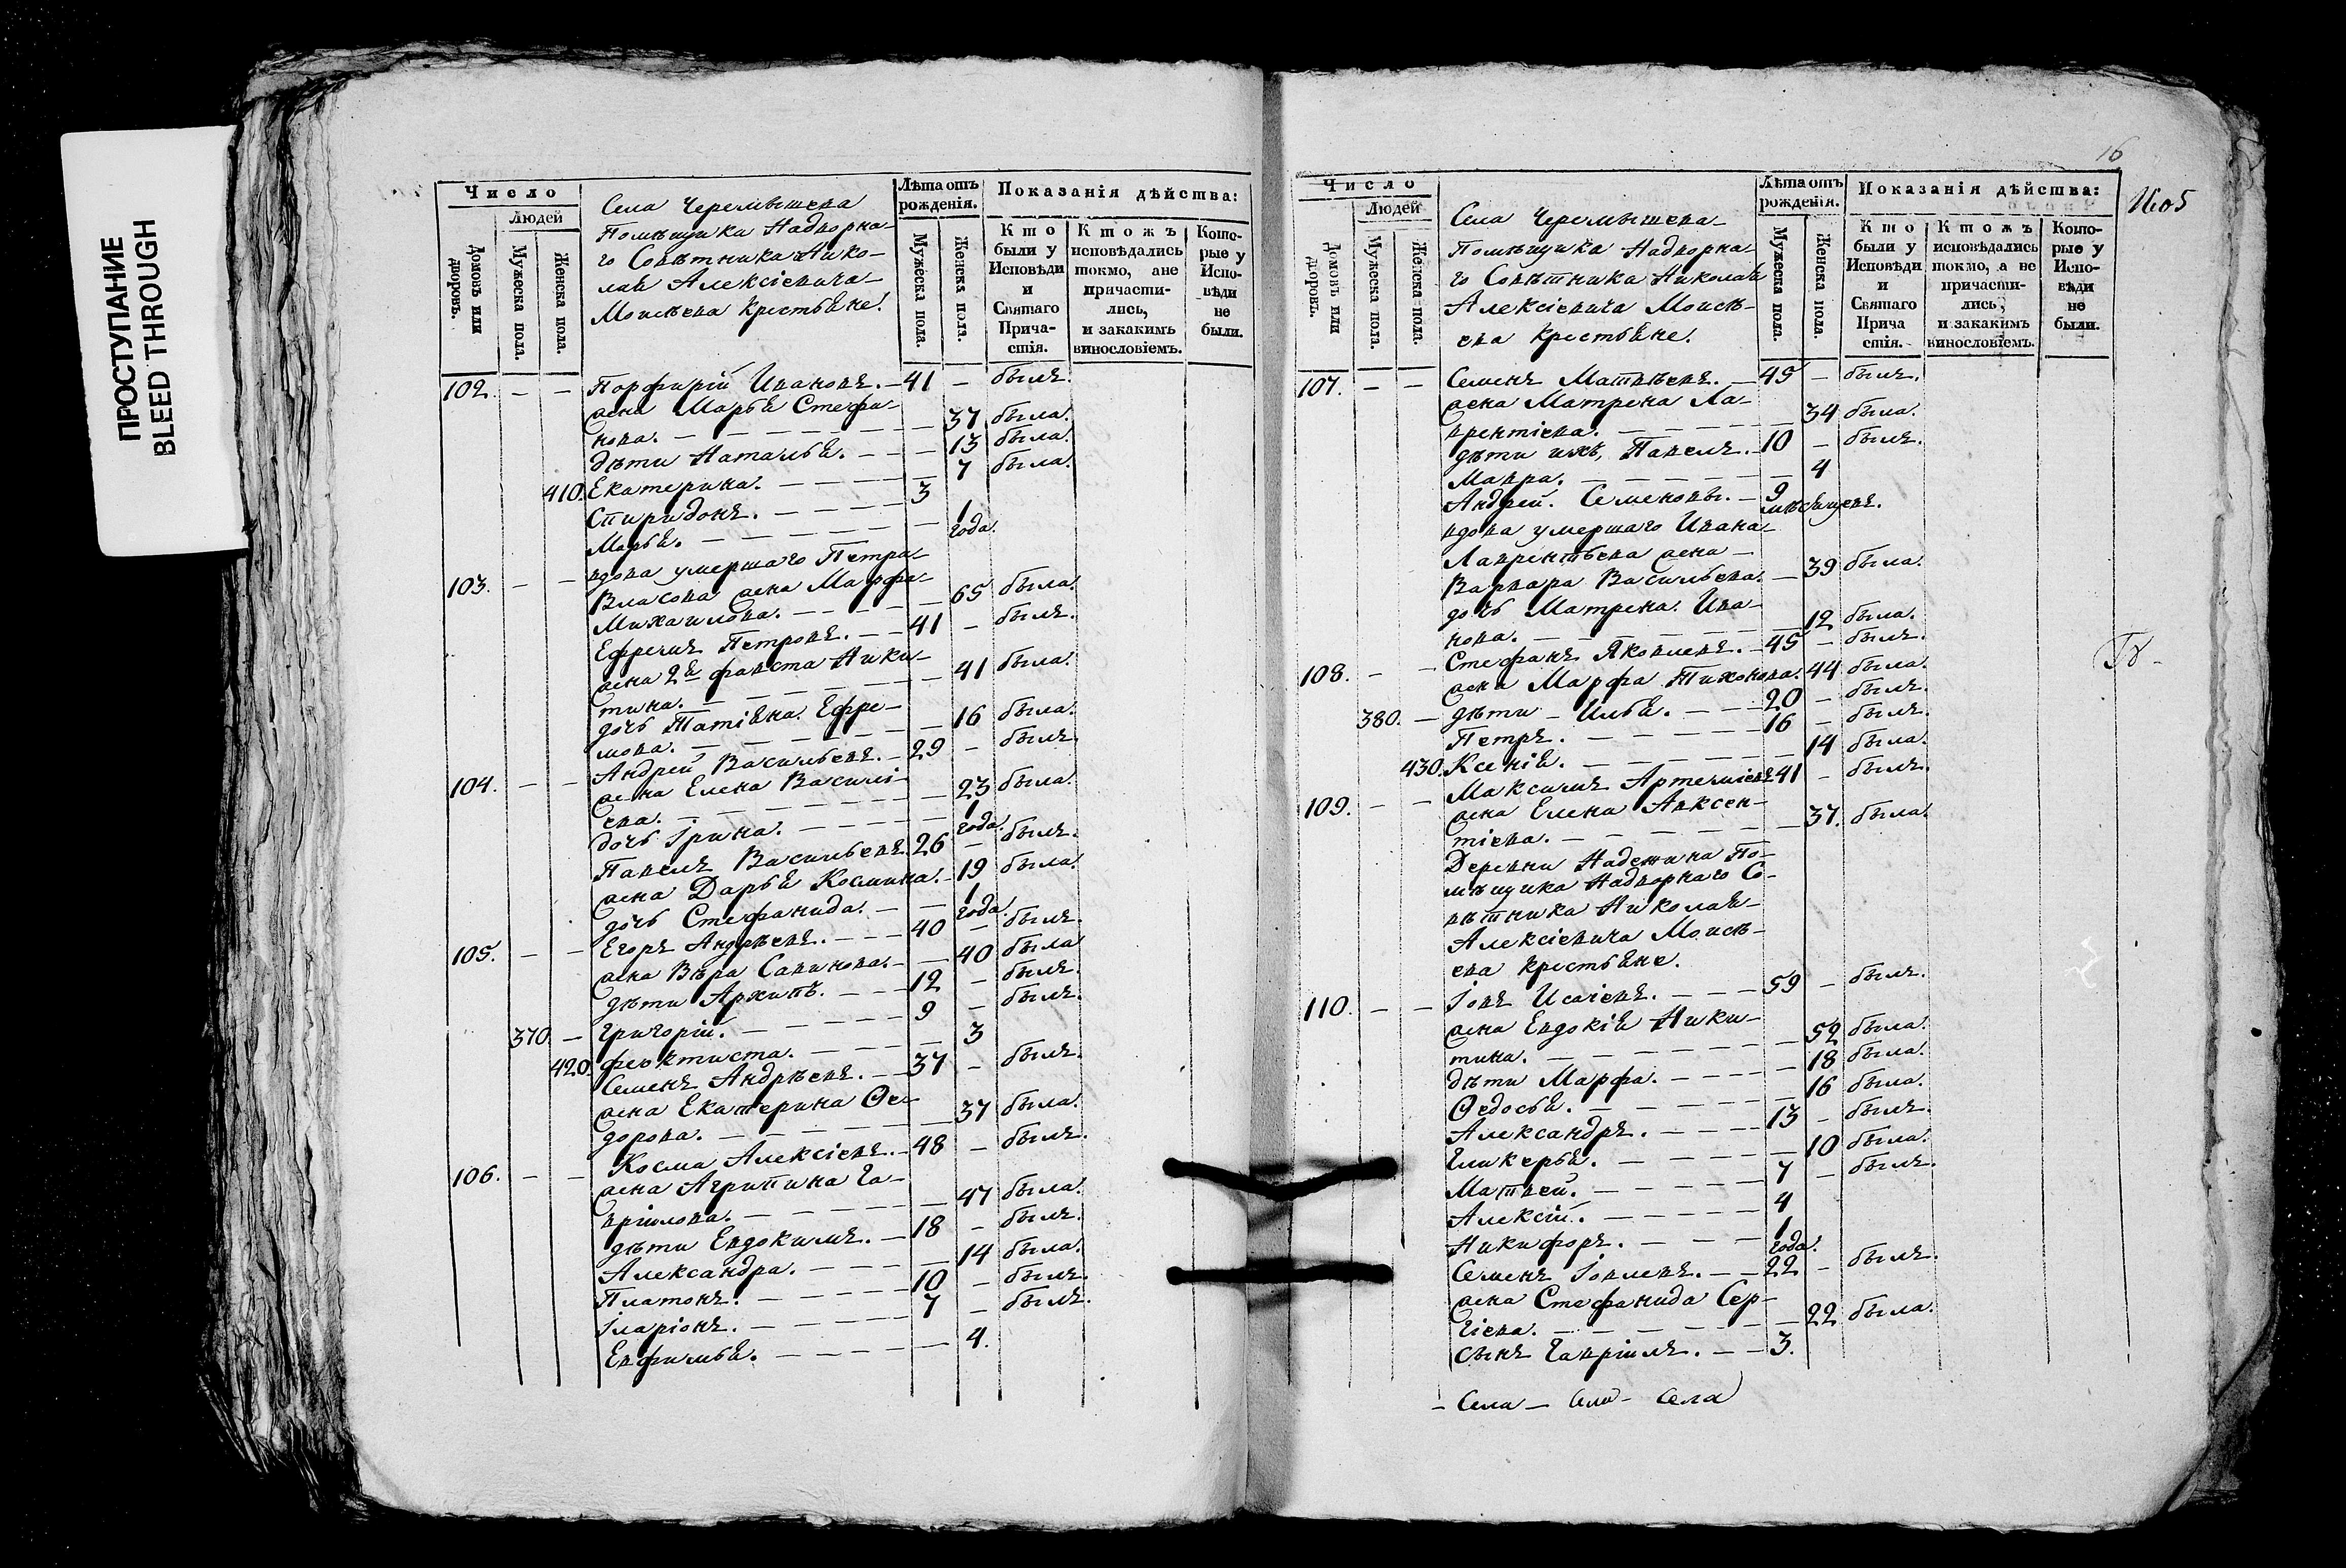 ПРОСТУПАНИЕ
BLEED THROUGH
Число
Людей
Домовъ или дворовъ.
Мужеска пола.
Женска пола.
Села Черемышева
Помѣщика Надворна-
го Совѣтника Нико-
лая Алексіевича
Моисѣева Крестьяне.
Лѣта отъ рожденія.
Мужеска пола.
Женска пола.
Показанія дѣйства:
Кто были у Исповѣди и Святаго Прича-стія.
Ктожъ исповѣдались токмо, ане причасти-лись, и закакимъ винословіемъ.
Кото-рые у Испо-вѣди не были.
102. – – Порфирій Ивановъ. – 41 – былъ.
жена Марья Стефа-
нова. – 37 была.
дѣти Наталья. – 13 была.
410. Екатерина. – 7 была.
Спиридонъ. – 3
Марья. – 1 года.
103. – – вдова умершаго Петра
Власова жена Марфа
Михаилова. – 65 была.
Ефремъ Петровъ. – 41 – былъ.
жена 2я Фавста Ники-
тина. – 41 была.
дочь Татіяна Ефре-
мова. – 16 была.
104. – – Андрей Васильевъ. – 29 – былъ.
жена Елена Василі-
ева. – 23 была.
дочь Ірина. – 1 года.
Павелъ Васильевъ. 26 – былъ.
жена Дарья Космина. – 19 была.
дочь Стефанида. – 1 года.
105. – – Егоръ Андрѣевъ. – 40 – былъ.
жена Вѣра Савинова. – 40 была
дѣти Архипъ. – 12 – былъ.
370. – Григорій. – 9 – былъ.
420. Феоктиста. – 3
Семенъ Андрѣевъ. – 37 – былъ.
жена Екатерина Ѳео-
дорова. – 37 была.
106. – – Косма Алексіевъ. – 48 – былъ.
жена Агрипина Га-
вріилова. – 47 была.
дѣти Евдокимъ. – 18 – былъ.
Александра. – 14 была.
Платонъ. – 10 – былъ.
Іларіонъ. – 7 – былъ.
Евфимья. – 4.
16
Число
Людей
Домовъ или дворовъ.
Мужеска пола.
Женска пола.
Села Черемышева
Помѣщика Надворна-
го Совѣтника Николая
Алексіевича Моисѣ-
ева Крестьяне.
Лѣта отъ рожденія.
Мужеска пола.
Женска пола.
Показанія дѣйства:
Кто были у Исповѣди и Святаго Прича стія.
Ктожъ исповѣдались токмо, а не причасти-лись, и закакимъ винословіемъ.
Кото-рые у Испо-вѣди не были.
107. – – Семенъ Матвѣевъ. – 45 – былъ.
жена Матрена Ла-
врентіева. – 34 была.
дѣти ихъ, Павелъ. – 10 – былъ.
Мавра. – 4
Андрей. Семеновы. – 9 мѣсяцевъ.
вдова умершаго Ивана
Лаврентьева жена
Варвара Васильева. – 39 была.
дочь Матрена. Ива-
нова. – 12 была.
108. – – Стефанъ Яковлевъ. – 45 – былъ.
жена Марфа Тихонова. 44 была.
380. – дѣти – Илья. – 20 – былъ.
Петръ. – 16 – былъ.
430. Ксенія. – 14 была.
109. – – Максимъ Артеміевъ 41 – былъ.
жена Елена Авксен-
тіева. – 37. была.
Деревни Надежина По-
мѣщика Надворнаго Со-
вѣтника Николая
Алексіевича Моисѣ-
ева Крестьяне.
110. – – Іовъ Исаіевъ. – 59 – былъ.
жена Евдокія Ники-
тина. – 52 была.
дѣти Марфа. – 18 была.
Ѳедосья. – 16 была.
Александръ. – 13 – былъ.
Гликерья. – 10 была.
Матвей. – 7 – былъ.
Алексій. – 4
Никифоръ. – 1 года.
Семенъ Іовлевъ. – 22 – былъ.
жена Стефанида Сер-
гіева. – 22 была.
сынъ Гавріилъ. – 3.
– Села – Села – Села